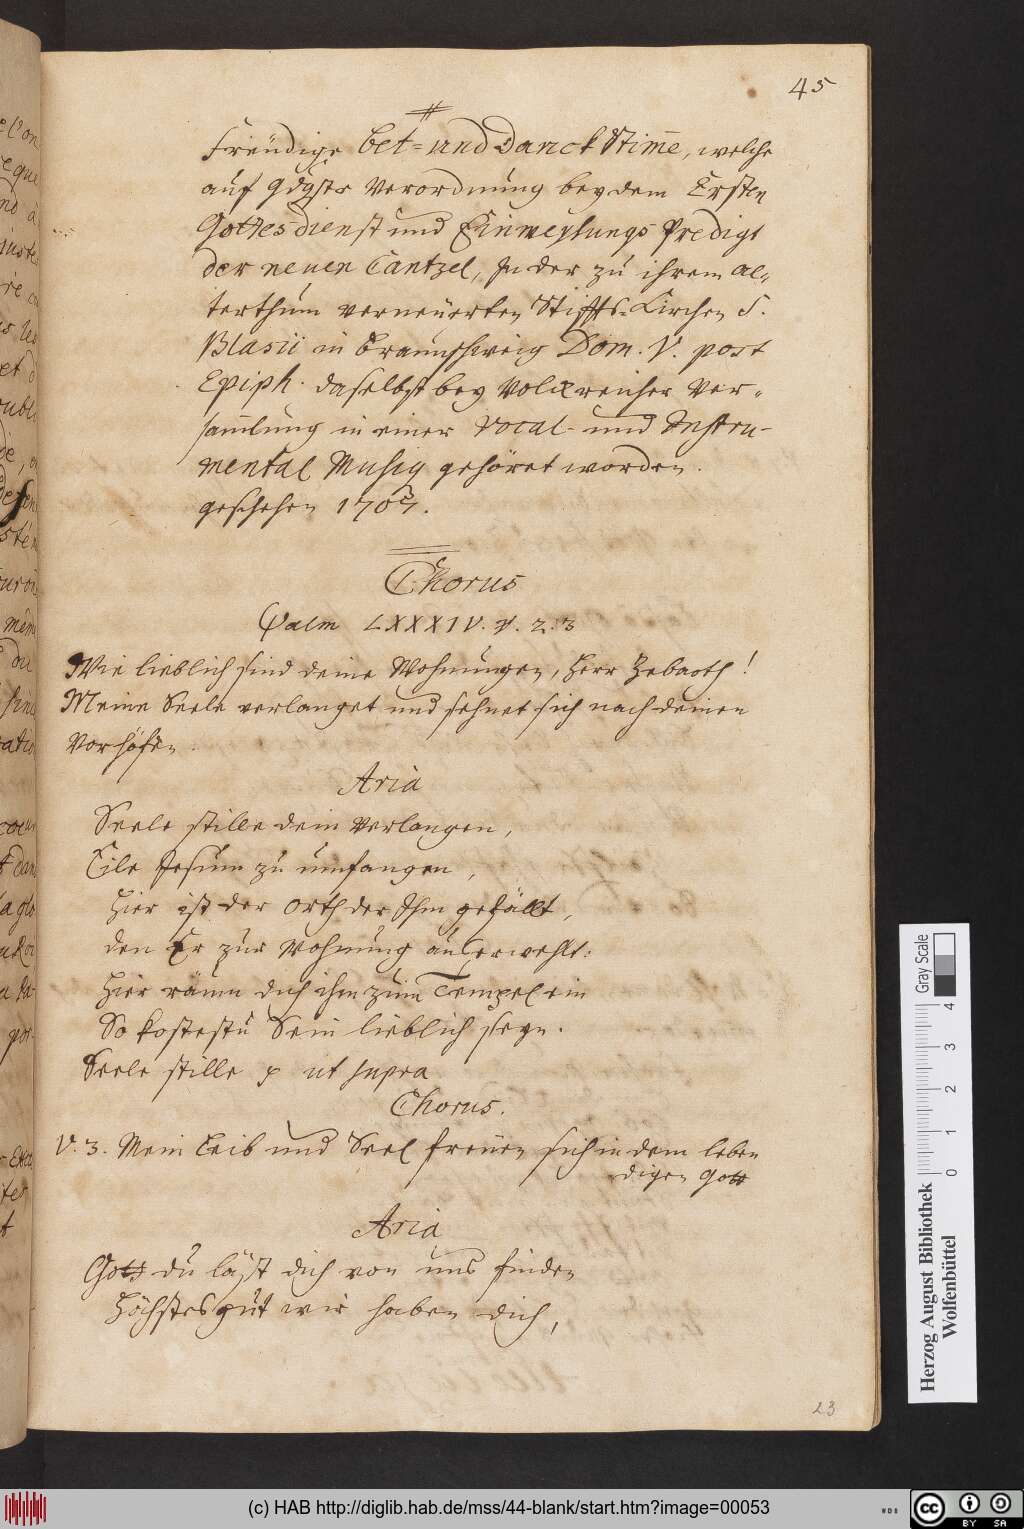 45
Freüdige Bet= und Danck Stim̅e, welche
auf gdgste Verordnung bey dem Ersten
Gottesdienst und Einweyhungs Predigt
der neuen Cantzel, In der zu ihrem al-
terthum verneuerten Stiffts-Kirchen S.
Blasii in Braunschweig Dom. V. post
Epiph. daselbst bey Volckreicher Ver-
samlung in einer Vocal- und Instru-
mental Musiq gehöret worden.
geschehen 1707.
Chorus
Psalm LXXXIV. v. 2. 3
Wie lieblich sind deine Wohnungen, Herr Zebaoth!
Meine Seele verlanget und sehnet sich nach deinen
Vorhöfen
Aria
Seele stille dein Verlangen,
Eile Jesum zu umfangen,
Hier ist der Orth der Ihm gefällt,
den Er zur Wohnung auserwehlt:
Hier räum dich ihm zum Tempel ein
So kostestu Sein lieblich seyn.
Seele stille p ut supra
Chorus.
V. 3. Mein Leib und Seel freuen sich in dem leben
digen Gott
Aria
Gott du läst dich von uns finden
Höchstes gut wir haben dich,
23
Herzog August Bibliothek
Wolfenbüttel
0 1 2 3 4
Gray Scale
(c) HAB http://diglib.hab.de/mss/44-blank/start.htm?image=00053
WDB
cc BY SA